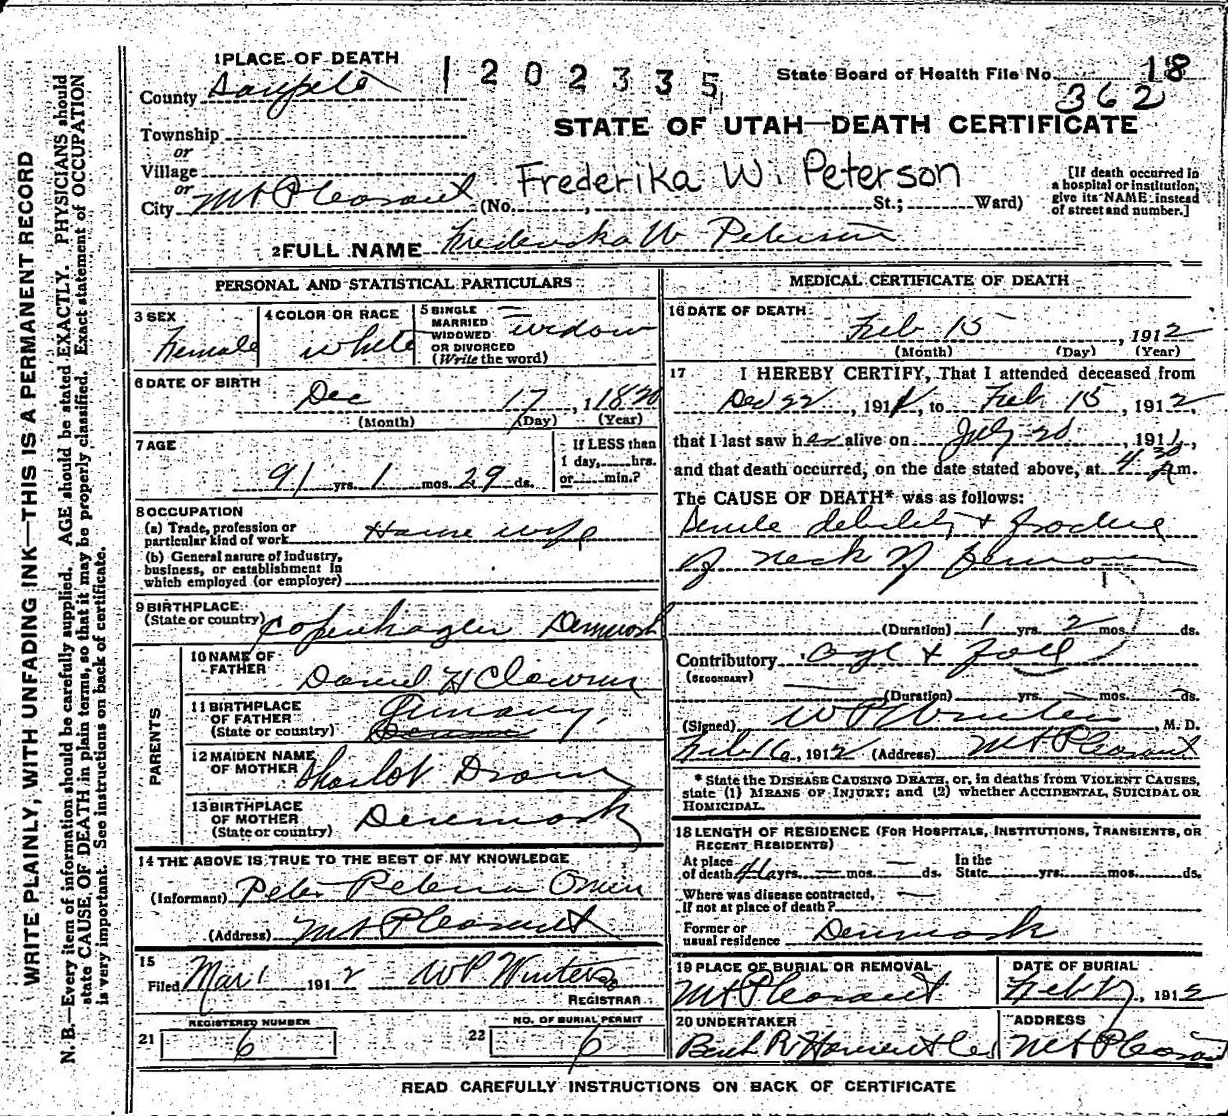 WRITE PLAINLY, WITH UNFADING INK—THIS IS A PERMANENT RECORD
N. B.—Every item of information should be carefully supplied. AGE should be stated EXACTLY. PHYSICIANS should
state CAUSE OF DEATH in plain terms, so that it may be properly classified. Exact statement of OCCUPATION
is very important. See instructions on back of certificate.
1 PLACE OF DEATH
1202335
State Board of Health File No. 18
362
County Sanpete
STATE OF UTAH—DEATH CERTIFICATE
Township
or
Village
or
City Mt Pleasant
Frederika W. Peterson
(No. , St.; Ward)
[If death occurred in
a hospital or institution,
give its NAME instead
of street and number.]
2 FULL NAME Frederika W Peterson
PERSONAL AND STATISTICAL PARTICULARS
3 SEX
Female
4 COLOR OR RACE
White
5 SINGLE
MARRIED
WIDOWED
OR DIVORCED
(Write the word)
widow
6 DATE OF BIRTH
Dec 17, 1820
(Month) (Day) (Year)
7 AGE
91 yrs. 1 mos. 29 ds.
If LESS than
1 day, hrs.
or min.?
8 OCCUPATION
(a) Trade, profession or
particular kind of work House wife
(b) General nature of Industry,
business, or establishment in
which employed (or employer)
9 BIRTHPLACE
(State or country) Copenhagen Denmark
PARENTS
10 NAME OF
FATHER
Daniel H
11 BIRTHPLACE
OF FATHER
(State or country)
Germany
12 MAIDEN NAME
OF MOTHER
13 BIRTHPLACE
OF MOTHER
(State or country)
Denmark
14 THE ABOVE IS TRUE TO THE BEST OF MY KNOWLEDGE
(Informant) Peter Peterson
(Address) Mt Pleasant
15
Filed Mar 1 1912 W P Winters
REGISTRAR
21
REGISTERED NUMBER
6
22
NO. OF BURIAL PERMIT
6
MEDICAL CERTIFICATE OF DEATH
16 DATE OF DEATH
Feb 15, 1912
(Month) (Day) (Year)
17 I HEREBY CERTIFY, That I attended deceased from
Dec 22, 1911, to Feb 15, 1912,
that I last saw her alive on July 20, 1911,
and that death occurred, on the date stated above, at 4 30 m.
The CAUSE OF DEATH* was as follows:
Senile debility +
of neck of femur
(Duration) 1 yrs. 2 mos. ds.
Contributory age + fall
(SECONDARY)
(Duration) yrs. mos. ds.
(Signed) W P Winters, M. D.
Feb 16, 1912 (Address) Mt Pleasant
* State the DISEASE CAUSING DEATH, or, in deaths from VIOLENT CAUSES,
state (1) MEANS OF INJURY; and (2) whether ACCIDENTAL, SUICIDAL OR
HOMICIDAL.
18 LENGTH OF RESIDENCE (FOR HOSPITALS, INSTITUTIONS, TRANSIENTS, OR
RECENT RESIDENTS)
At place
of death yrs. mos. ds.
In the
State yrs. mos. ds.
Where was disease contracted,
If not at place of death?
Former or
usual residence Denmark
19 PLACE OF BURIAL OR REMOVAL
Mt Pleasant
DATE OF BURIAL
Feb 17, 1912
20 UNDERTAKER
ADDRESS
Mt Pleasant
READ CAREFULLY INSTRUCTIONS ON BACK OF CERTIFICATE